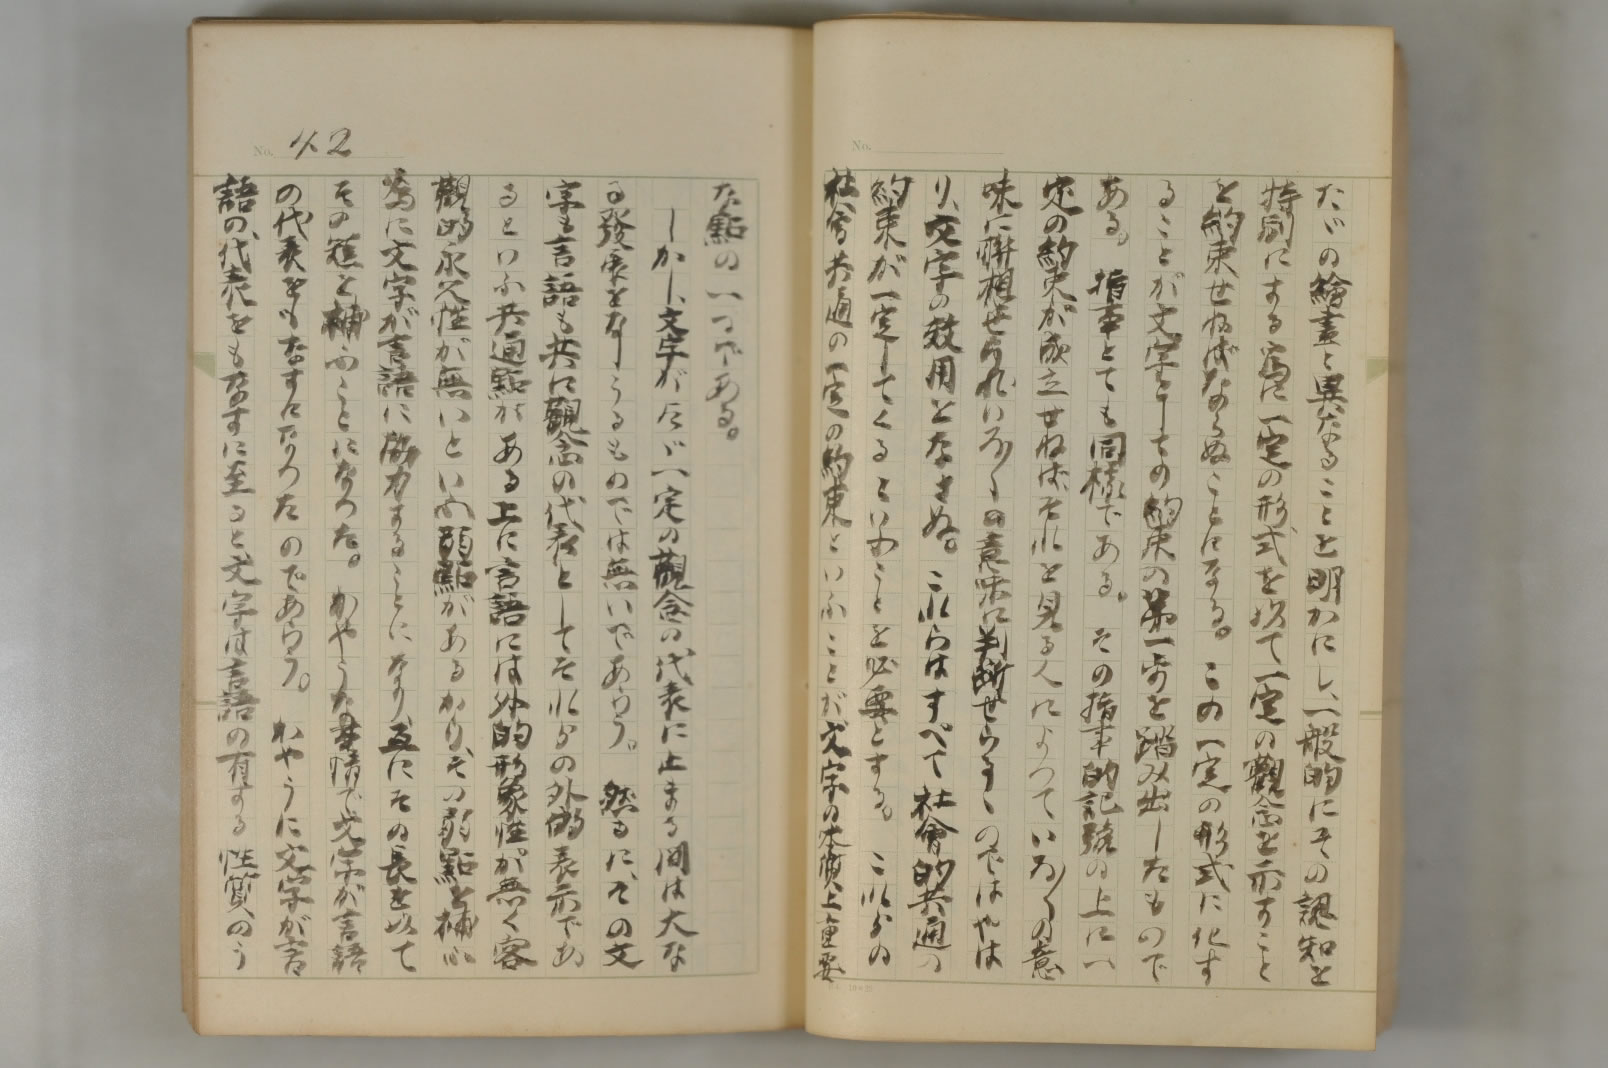 たゞの繪畫と異なることを明かにし、一般的にその認知を
特別にする爲に一定の形式を以て一定の觀念を示すこと
を約束せねばならぬことになる。この一定の形式に化す
ることが文字としての約束の第一歩を踏み出したもので
ある。指事とても同樣である。その指事的記號の上に一
定の約束が成立せねばそれを見る人によつていろ〱の意
味に聯想せられいろ〱の意味に判斷せらるゝのではやは
り、文字の效用をなさぬ。これらはすべて社會的共通の
約束が一定してくるといふことを必要とする。これらの
社會共通の一定の約束といふことが文字の本質上重要
No.
10×25
No. 42
た點の一つである。
しかし、文字がたゞ一定の觀念の代表に止まる間は大な
る發展をなしうるものでは無いであらう。然るに、その文
字も言語も共に觀念の代表としてそれらの外的表示であ
るといふ共通點がある上に言語には外的形象性が無く客
觀的永久性が無いといふ弱點があるから、その弱點を補ふ
爲に文字が言語に協力することになり、互にその長を以て
その短を補ふことになつた。かやうな事情で文字が言語
の代表をもなすになつたのであらう。かやうに文字が言
語の代表をもなすに至ると文字は言語の有する性質のう